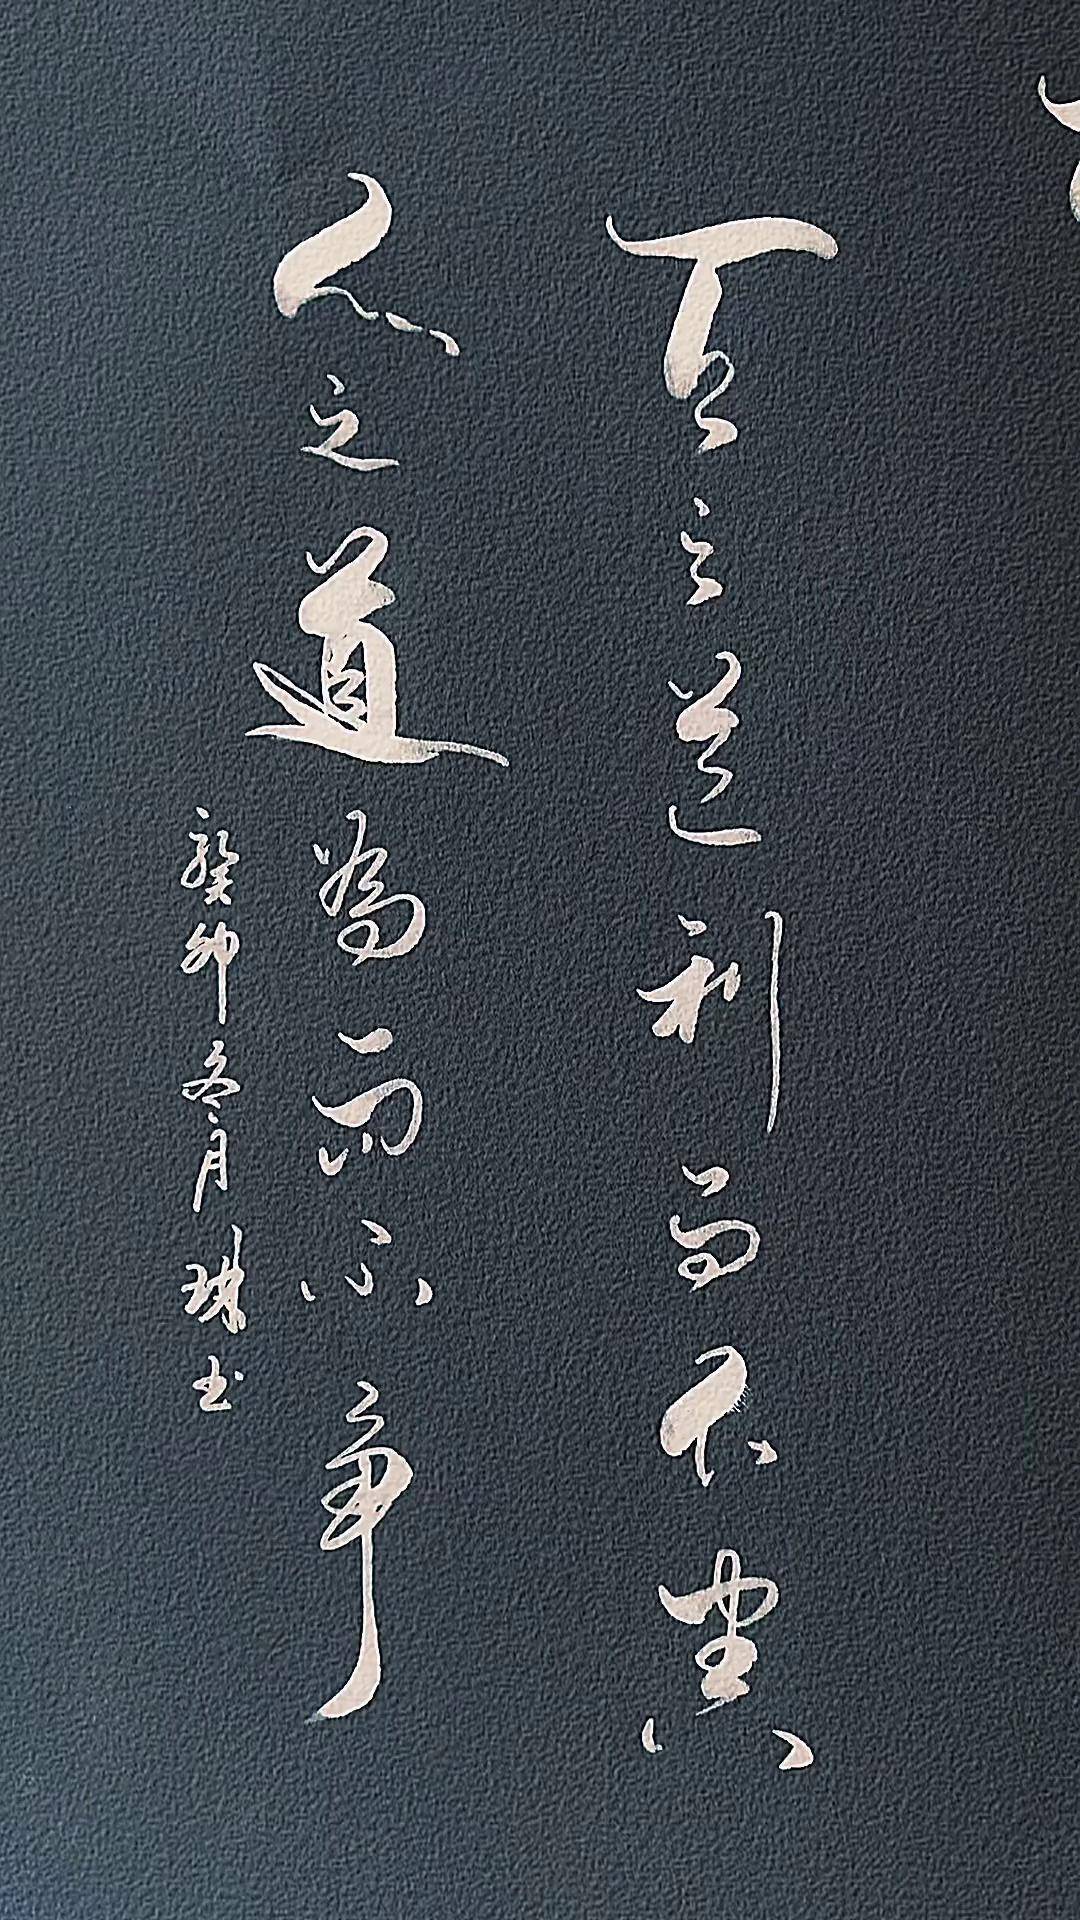 天之道利而不害
人之道為而不争
癸卯冬月珠书